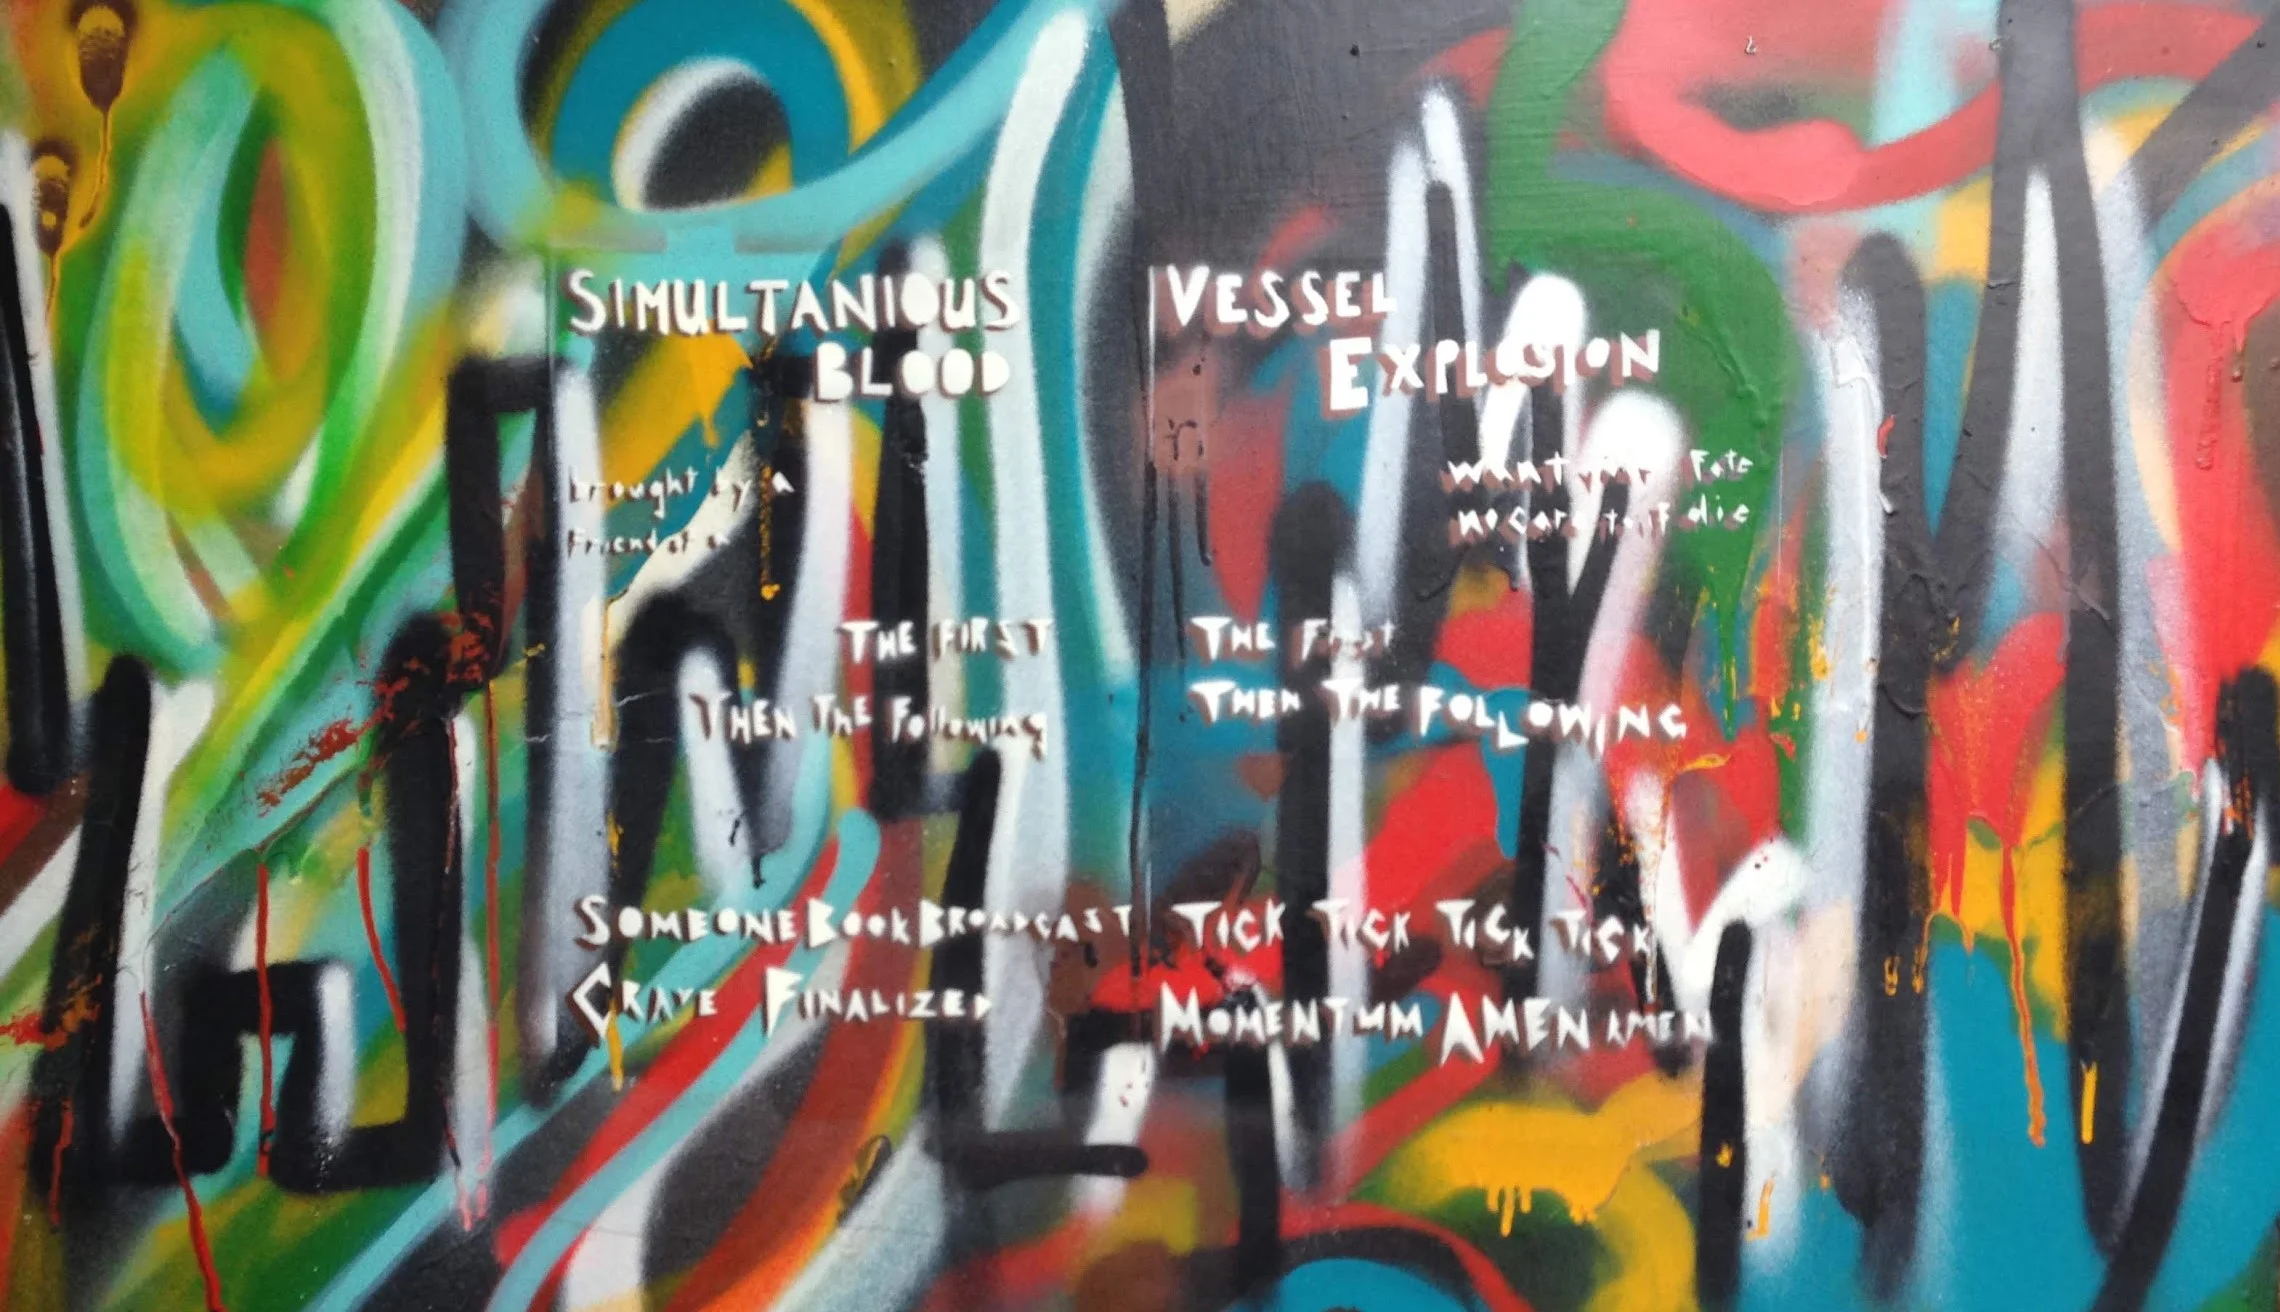 SIMULTANIOUS
BLOOD
brought by a
Friend of an
THE FIRST
THEN THE Following
SOMEONE BOOK BROADCAST
CRAVE FINALIZED
VESSEL
EXPLOSION
want your Fate
no care to if die
THE First
THEN THE FOLLOWING
TICK TICK TICK TICK
MOMENTUM AMEN AMEN